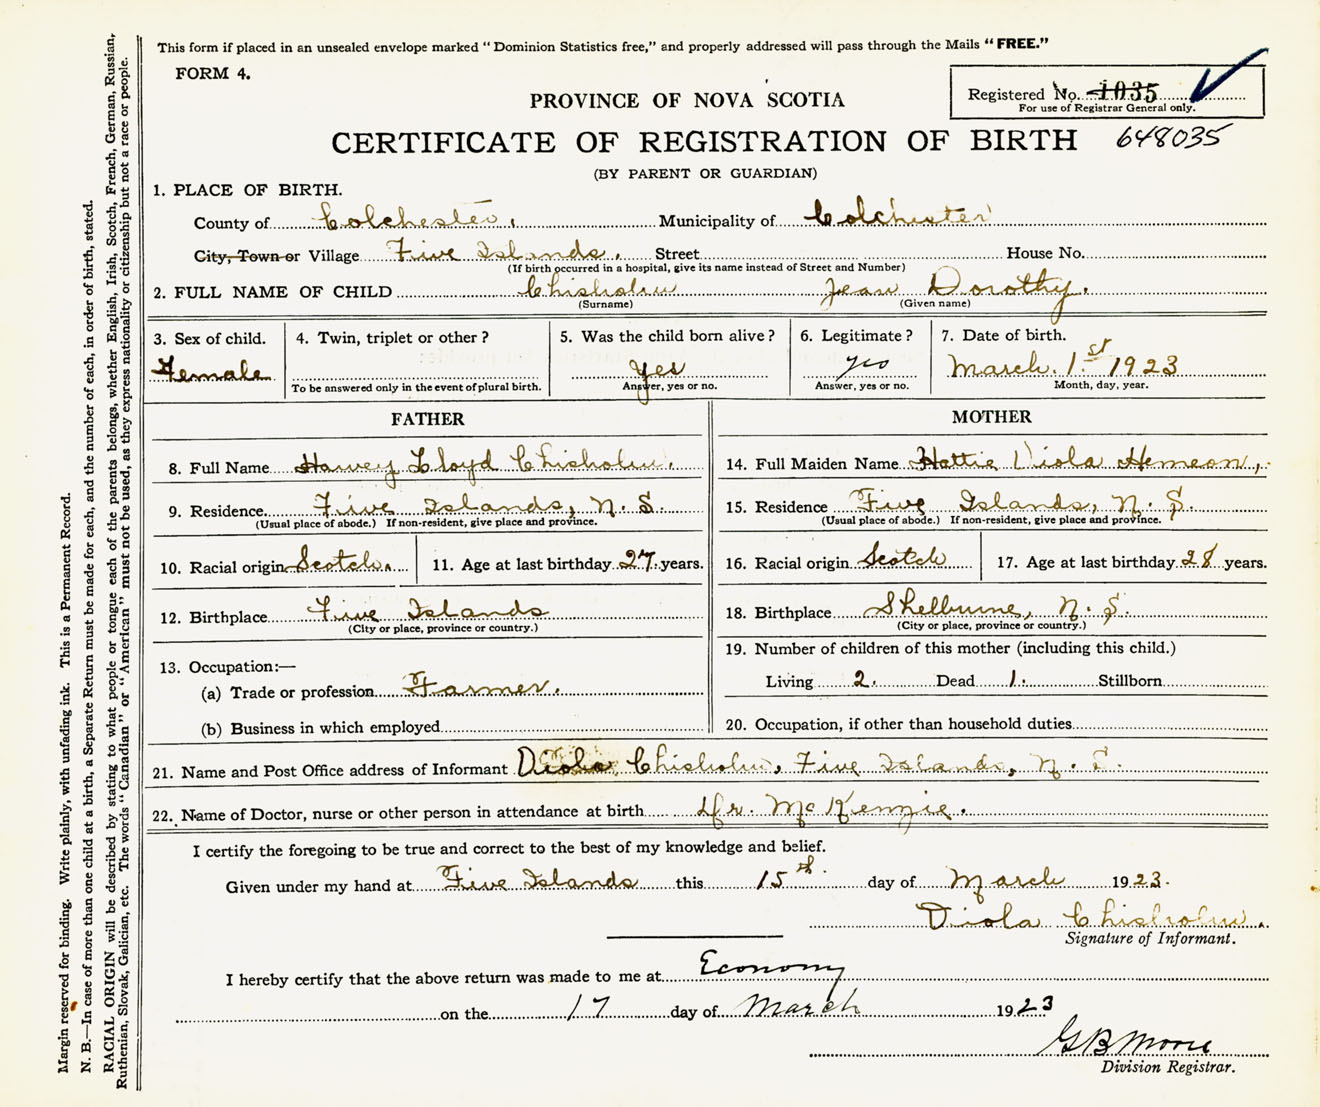 This form if placed in an unsealed envelope marked “Dominion Statistics free,” and properly addressed will pass through the Mails “FREE.”
FORM 4.
Registered No. 1035
For use of Registrar General only.
PROVINCE OF NOVA SCOTIA
CERTIFICATE OF REGISTRATION OF BIRTH 648035
(BY PARENT OR GUARDIAN)
1. PLACE OF BIRTH.
County of Colchester, Municipality of Colchester
City, Town or Village Five Islands. Street House No.
(If birth occurred in a hospital, give its name instead of Street and Number)
2. FULL NAME OF CHILD Chisholm Jean Dorothy.
(Surname) (Given name)
3. Sex of child. 4. Twin, triplet or other? 5. Was the child born alive? 6. Legitimate? 7. Date of birth.
Female yes yes March. 1.st 1923
To be answered only in the event of plural birth. Answer, yes or no. Answer, yes or no. Month, day, year.
FATHER MOTHER
8. Full Name Harvey Lloyd Chisholm. 14. Full Maiden Name Hattie Viola Hemeon,
9. Residence Five Islands, N. S. 15. Residence Five Islands, N. S.
(Usual place of abode.) If non-resident, give place and province. (Usual place of abode.) If non-resident, give place and province.
10. Racial origin Scotch. 11. Age at last birthday 27. years. 16. Racial origin Scotch 17. Age at last birthday 28 years.
12. Birthplace Five Islands 18. Birthplace Shelburne, N. S.
(City or place, province or country.) (City or place, province or country.)
13. Occupation:— 19. Number of children of this mother (including this child.)
(a) Trade or profession Farmer. Living 2. Dead 1. Stillborn
(b) Business in which employed 20. Occupation, if other than household duties
21. Name and Post Office address of Informant Viola Chisholm, Five Islands, N. S.
22. Name of Doctor, nurse or other person in attendance at birth Dr. McKenzie.
I certify the foregoing to be true and correct to the best of my knowledge and belief.
Given under my hand at Five Islands this 15th. day of March 1923.
Viola Chisholm.
Signature of Informant.
I hereby certify that the above return was made to me at Economy
on the 17 day of March 1923
G B Moore
Division Registrar.
Margin reserved for binding. Write plainly, with unfading ink. This is a Permanent Record.
N. B.—In case of more than one child at a birth, a Separate Return must be made for each, and the number of each, in order of birth, stated.
RACIAL ORIGIN will be described by stating to what people or tongue each of the parents belongs, whether English, Irish, Scotch, French, German, Russian,
Ruthenian, Slovak, Galician, etc. The words “Canadian” or “American” must not be used, as they express nationality or citizenship but not a race or people.